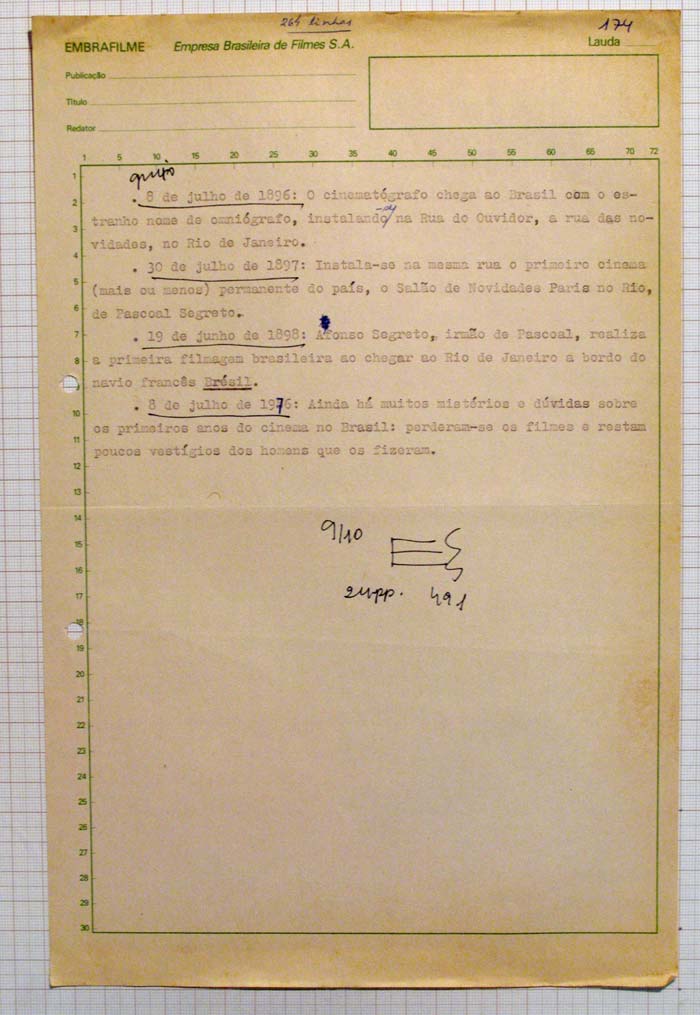 264 linhas
174
EMBRAFILME Empresa Brasileira de Filmes S.A. Lauda
Publicação
Título
Redator
1 5 10 15 20 25 30 35 40 45 50 55 60 65 70 72
grifo
. 8 de julho de 1896: O cinematógrafo chega ao Brasil com o es-
tranho nome de omniógrafo, instalando-se na Rua do Ouvidor, a rua das no-
vidades, no Rio de Janeiro.
. 30 de julho de 1897: Instala-se na mesma rua o primeiro cinema
(mais ou menos) permanente do país, o Salão de Novidades Paris no Rio,
de Pascoal Segreto.
. 19 de junho de 1898: Afonso Segreto, irmão de Pascoal, realiza
a primeira filmagem brasileira ao chegar ao Rio de Janeiro a bordo do
navio francês Brésil.
. 8 de julho de 1976: Ainda há muitos mistérios e dúvidas sobre
os primeiros anos do cinema no Brasil: perderam-se os filmes e restam
poucos vestígios dos homens que os fizeram.
9/10
24pp. 491
1
2
3
4
5
6
7
8
9
10
11
12
13
14
15
16
17
18
19
20
21
22
23
24
25
26
27
28
29
30